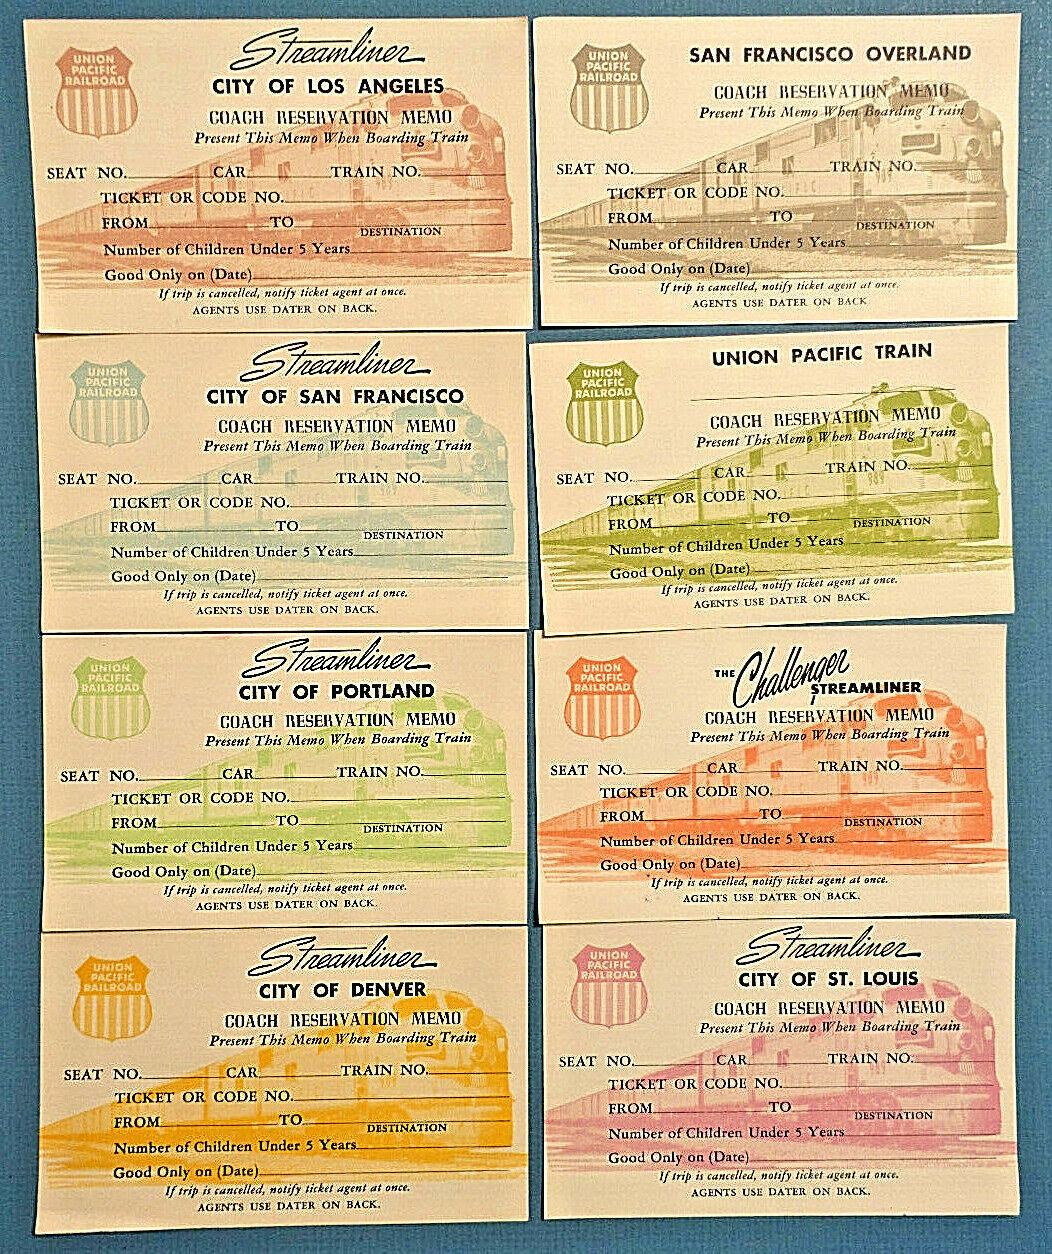 UNION
PACIFIC
RAILROAD
Streamliner
CITY OF LOS ANGELES
COACH RESERVATION MEMO
Present This Memo When Boarding Train
SEAT NO. CAR TRAIN NO.
TICKET OR CODE NO.
FROM TO
DESTINATION
Number of Children Under 5 Years
Good Only on (Date)
If trip is cancelled, notify ticket agent at once.
AGENTS USE DATER ON BACK.
UNION
PACIFIC
RAILROAD
SAN FRANCISCO OVERLAND
COACH RESERVATION MEMO
Present This Memo When Boarding Train
SEAT NO. CAR TRAIN NO.
TICKET OR CODE NO.
FROM TO
DESTINATION
Number of Children Under 5 Years
Good Only on (Date)
If trip is cancelled, notify ticket agent at once.
AGENTS USE DATER ON BACK.
UNION
PACIFIC
RAILROAD
Streamliner
CITY OF SAN FRANCISCO
COACH RESERVATION MEMO
Present This Memo When Boarding Train
SEAT NO. CAR TRAIN NO.
TICKET OR CODE NO.
FROM TO
DESTINATION
Number of Children Under 5 Years
Good Only on (Date)
If trip is cancelled, notify ticket agent at once.
AGENTS USE DATER ON BACK.
UNION
PACIFIC
RAILROAD
UNION PACIFIC TRAIN
COACH RESERVATION MEMO
Present This Memo When Boarding Train
SEAT NO. CAR TRAIN NO.
989
TICKET OR CODE NO.
FROM TO
DESTINATION
Number of Children Under 5 Years
Good Only on (Date)
If trip is cancelled, notify ticket agent at once.
AGENTS USE DATER ON BACK.
UNION
PACIFIC
RAILROAD
Streamliner
CITY OF PORTLAND
COACH RESERVATION MEMO
Present This Memo When Boarding Train
SEAT NO. CAR TRAIN NO.
TICKET OR CODE NO.
FROM TO
DESTINATION
Number of Children Under 5 Years
Good Only on (Date)
If trip is cancelled, notify ticket agent at once.
AGENTS USE DATER ON BACK.
UNION
PACIFIC
RAILROAD
THE Challenger
STREAMLINER
COACH RESERVATION MEMO
Present This Memo When Boarding Train
SEAT NO. CAR TRAIN NO.
TICKET OR CODE NO.
FROM TO
DESTINATION
Number of Children Under 5 Years
Good Only on (Date)
If trip is cancelled, notify ticket agent at once.
AGENTS USE DATER ON BACK.
UNION
PACIFIC
RAILROAD
Streamliner
CITY OF DENVER
COACH RESERVATION MEMO
Present This Memo When Boarding Train
SEAT NO. CAR TRAIN NO.
TICKET OR CODE NO.
FROM TO
DESTINATION
Number of Children Under 5 Years
Good Only on (Date)
If trip is cancelled, notify ticket agent at once.
AGENTS USE DATER ON BACK.
UNION
PACIFIC
RAILROAD
Streamliner
CITY OF ST. LOUIS
COACH RESERVATION MEMO
Present This Memo When Boarding Train
SEAT NO. CAR TRAIN NO.
TICKET OR CODE NO.
FROM TO
DESTINATION
Number of Children Under 5 Years
Good Only on (Date)
If trip is cancelled, notify ticket agent at once.
AGENTS USE DATER ON BACK.